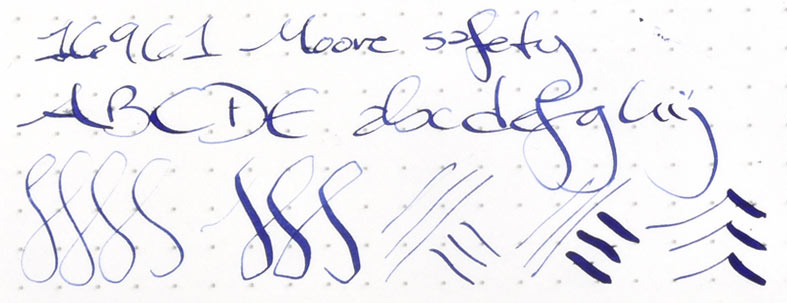 16961 Moore safety
ABCDE abcdefghij